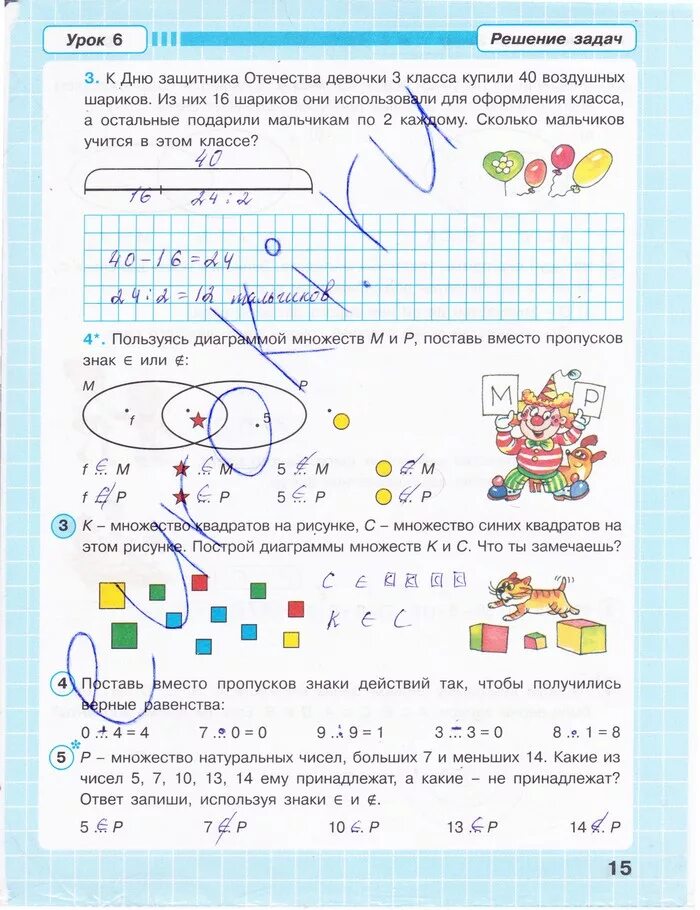 Урок 6
Решение задач
3. К Дню защитника Отечества девочки 3 класса купили 40 воздушных
шариков. Из них 16 шариков они использовали для оформления класса,
а остальные подарили мальчикам по 2 каждому. Сколько мальчиков
учится в этом классе?
40
16 24:2
40-16=24
24:2=12 мальчиков
4*. Пользуясь диаграммой множеств М и Р, поставь вместо пропусков
знак ∈ или ∉:
М Р
f 5
М Р
f ∈ М ∈ М 5 ∉ М ∉ М
f ∉ Р ∈ Р 5 ∈ Р ∉ Р
3 К – множество квадратов на рисунке, С – множество синих квадратов на
этом рисунке. Построй диаграммы множеств К и С. Что ты замечаешь?
С ∈
К ∈ С
4 Поставь вместо пропусков знаки действий так, чтобы получились
верные равенства:
0 : 4 = 4 7 0 = 0 9 : 9 = 1 3 - 3 = 0 8 : 1 = 8
5* Р – множество натуральных чисел, больших 7 и меньших 14. Какие из
чисел 5, 7, 10, 13, 14 ему принадлежат, а какие – не принадлежат?
Ответ запиши, используя знаки ∈ и ∉.
5 ∈ Р 7 ∉ Р 10 ∈ Р 13 ∈ Р 14 ∉ Р
15